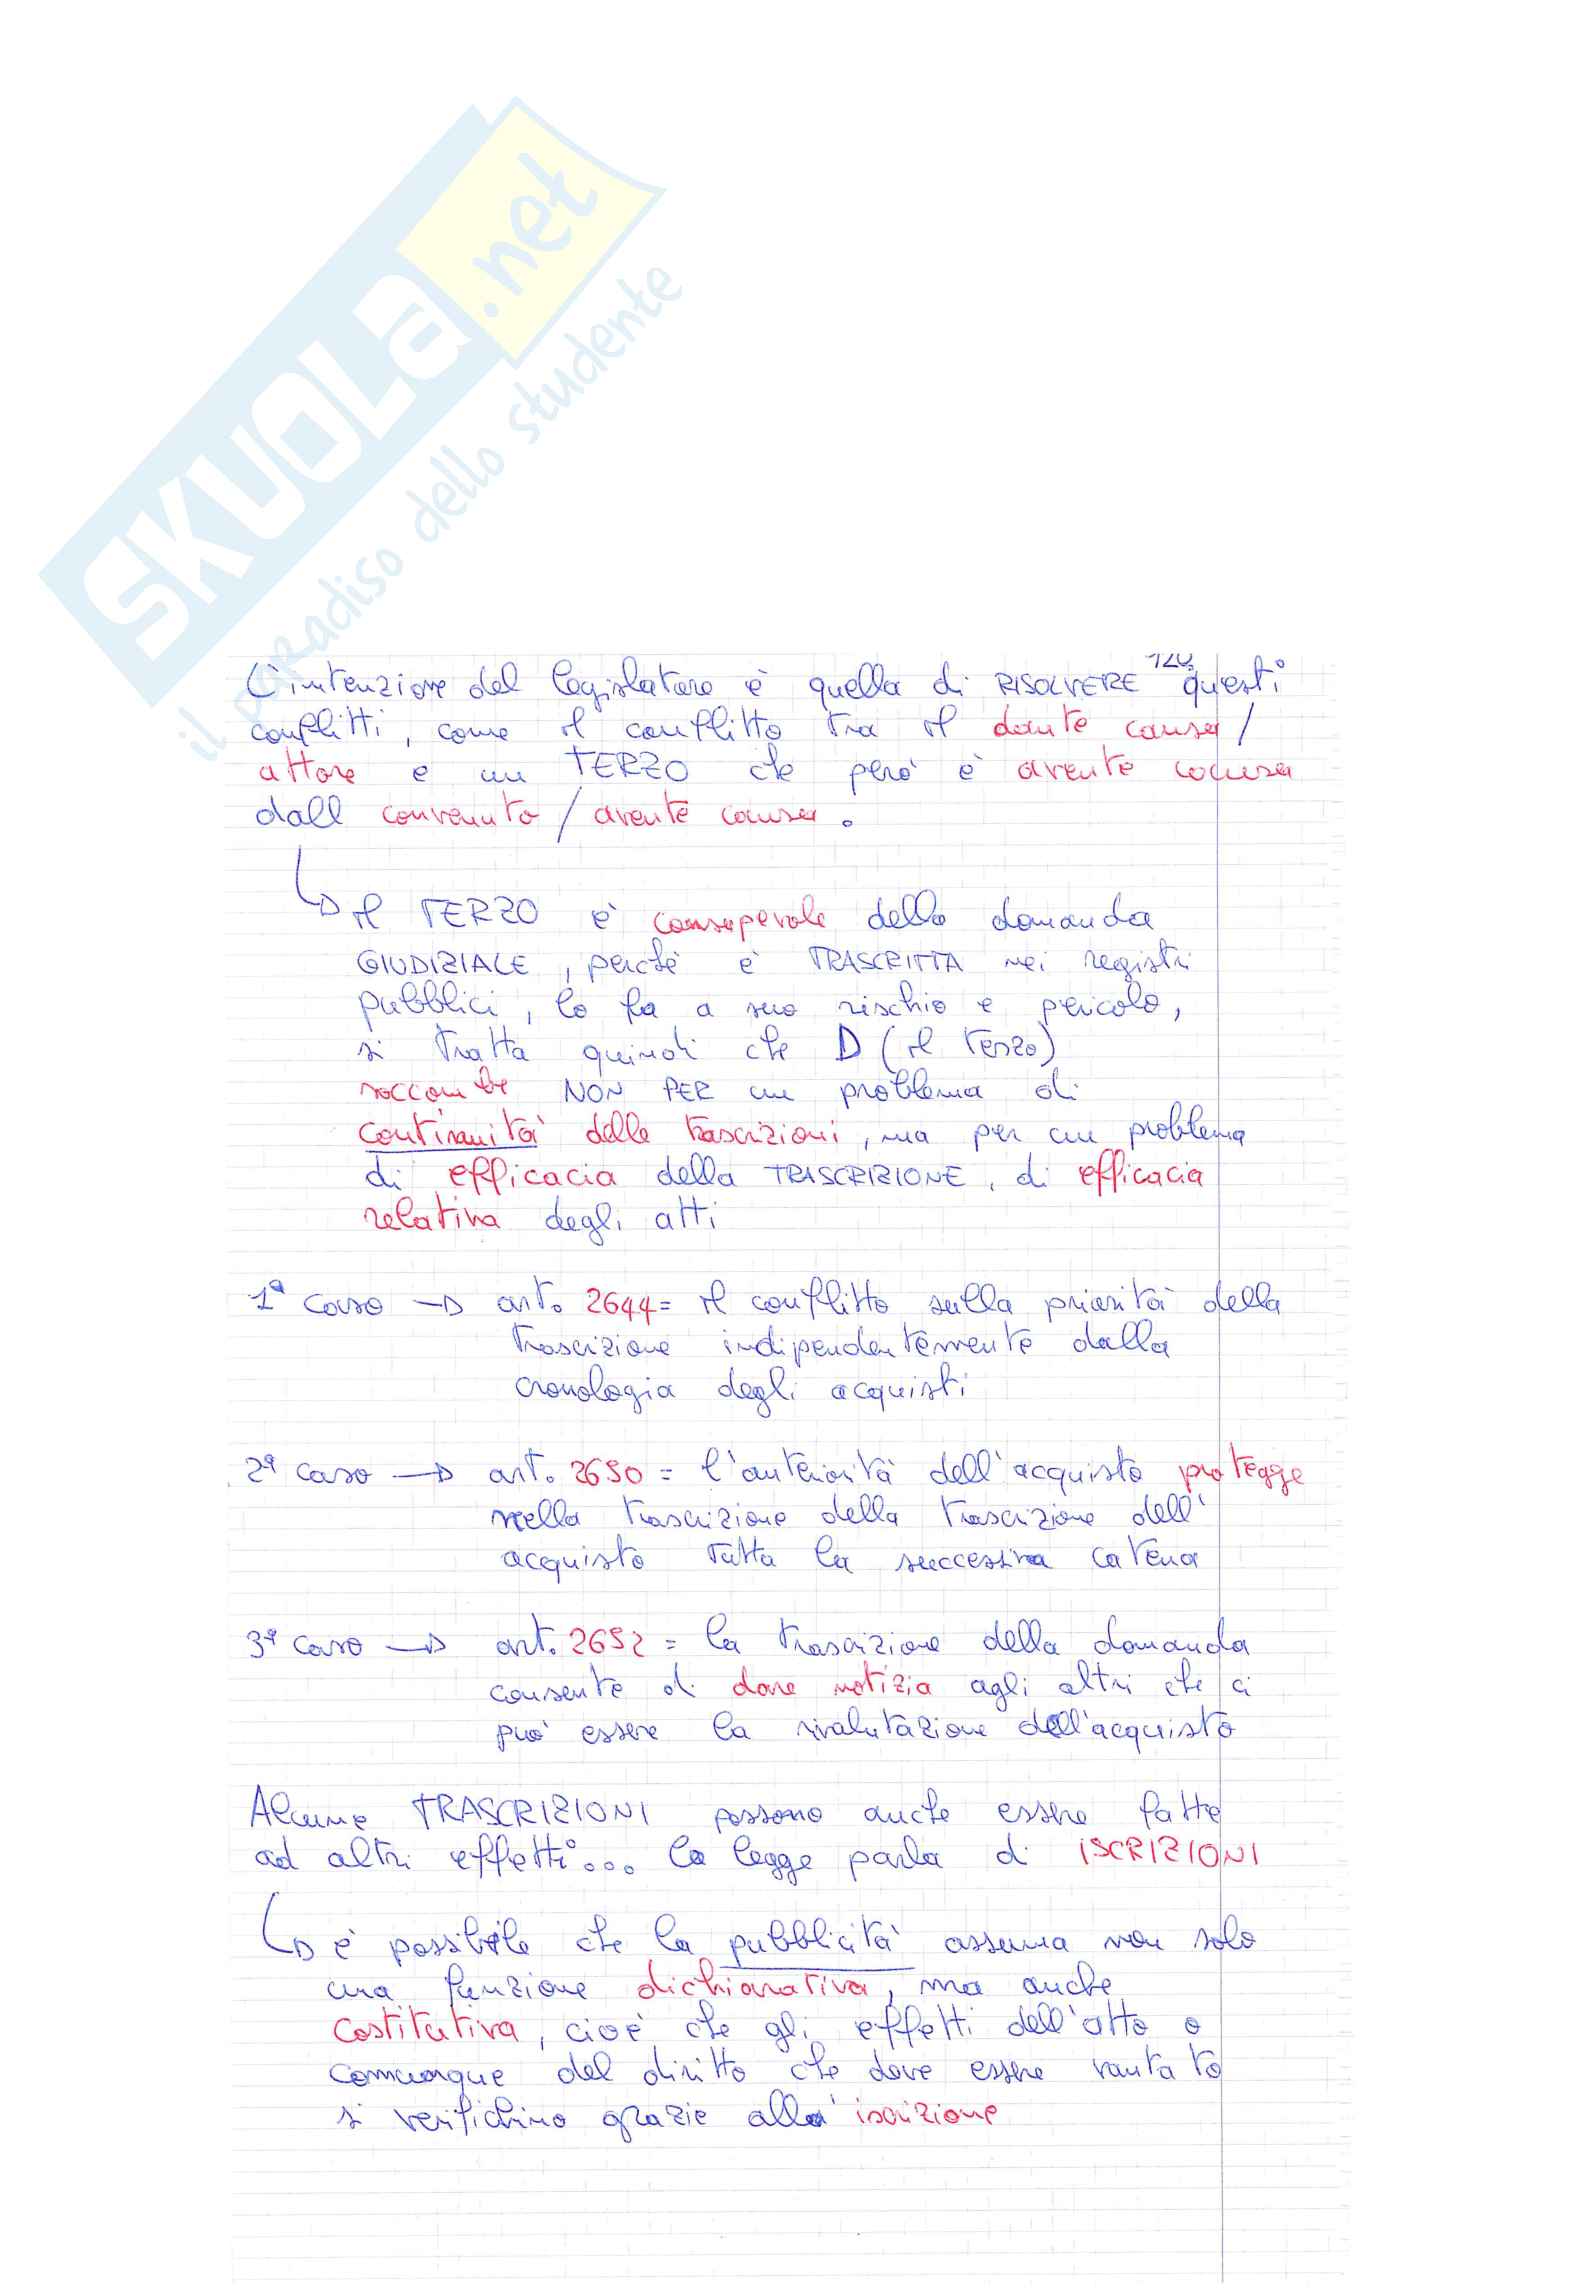 SKUOLA.net
il paradiso dello studente
120
L'intenzione del legislatore è quella di RISOLVERE questi
conflitti, come il conflitto tra il dante causa/
attore e un TERZO che però è avente causa
dall convenuto/avente causa.
il TERZO è consapevole della domanda
GIUDIZIALE, perché è TRASCRITTA nei registri
pubblici, lo fa a suo rischio e pericolo,
si tratta quindi che D (il terzo)
soccombe NON PER un problema di
continuità delle trascrizioni, ma per un problema
di efficacia della TRASCRIZIONE, di efficacia
relativa degli atti
1° caso → art. 2644 = il conflitto sulla priorità della
trascrizione indipendentemente dalla
cronologia degli acquisti
2° caso → art. 2650 = l'anteriorità dell'acquisto protegge
nella trascrizione della trascrizione dell'
acquisto tutta la successiva catena
3° caso → art. 2652 = la trascrizione della domanda
consente di dare notizia agli altri che ci
può essere la rivalutazione dell'acquisto
Alcune TRASCRIZIONI possono anche essere fatte
ad altri effetti... la legge parla di ISCRIZIONI
è possibile che la pubblicità assuma non solo
una funzione dichiarativa, ma anche
costitutiva, cioè che gli effetti dell'atto o
comunque del diritto che deve essere vantato
si verifichino grazie alla iscrizione